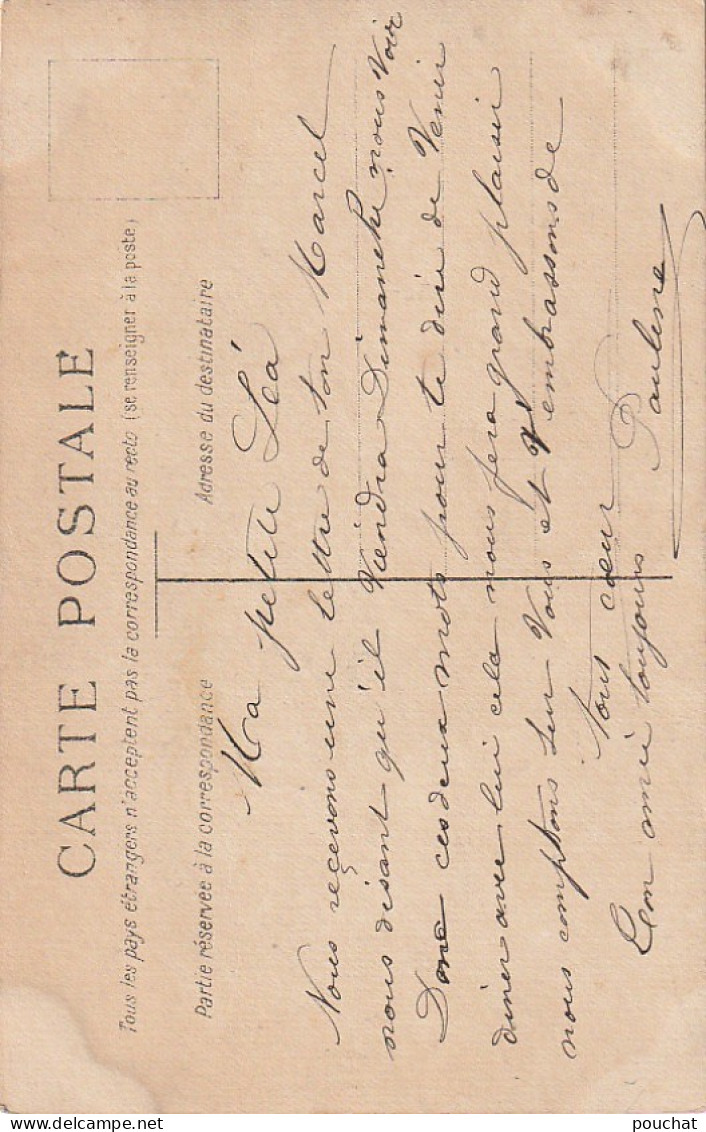 CARTE POSTALE
Tous les pays étrangers n'acceptent pas la correspondance au recto (se renseigner à la poste)
Partie réservée à la correspondance
Adresse du destinataire
Ma petite Léa
Nous reçevons une lettre de ton Marcel
nous disant qu'il Viendra Dimanche nous Voir
Donc ces deux mots pour te dire de Venir
diner avec lui cela nous fera grand plaisir
nous comptons sur Vous et t'embrassons de
tout coeur
Ton amie toujours Paulette
pouchat